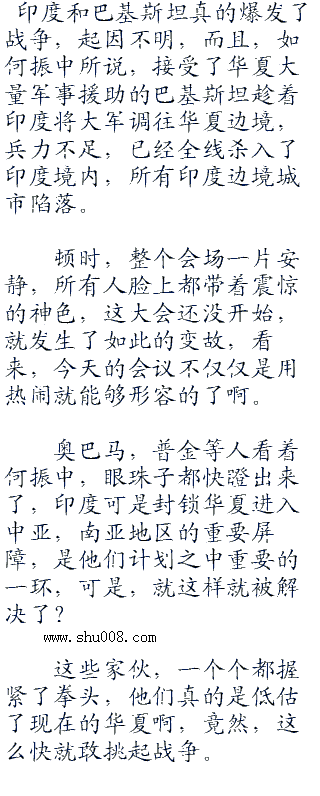 印度和巴基斯坦真的爆发了
战争，起因不明，而且，如
何振中所说，接受了华夏大
量军事援助的巴基斯坦趁着
印度将大军调往华夏边境，
兵力不足，已经全线杀入了
印度境内，所有印度边境城
市陷落。
顿时，整个会场一片安
静，所有人脸上都带着震惊
的神色，这大会还没开始，
就发生了如此的变故，看
来，今天的会议不仅仅是用
热闹就能够形容的了啊。
奥巴马，普金等人看着
何振中，眼珠子都快蹬出来
了，印度可是封锁华夏进入
中亚，南亚地区的重要屏
障，是他们计划之中重要的
一环，可是，就这样就被解
决了？
www.shu008.com
这些家伙，一个个都握
紧了拳头，他们真的是低估
了现在的华夏啊，竟然，这
么快就敢挑起战争。